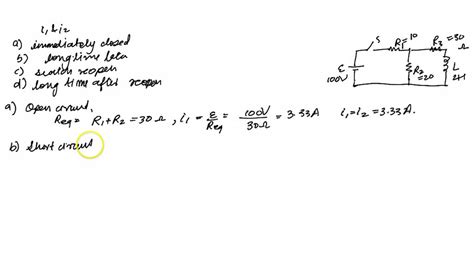 i, & i2
a) immediately closed
b) long time later
c) switch reopen
d) long time after reopen
S
R1=10
R3=30 Ω
ε
100V
R2=20
L
2H
a) Open circuit.
Req = R1+R2 = 30Ω, i1 = ε/Req = 100V/30Ω = 3.33A i1=i2=3.33A.
b) Short circuit